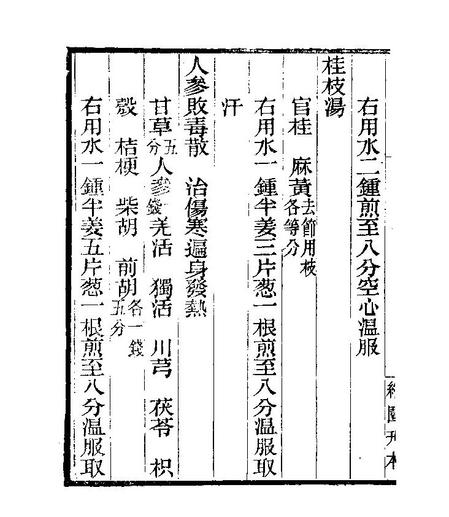 右用水二鍾煎至八分空心温服
桂枝湯
官桂 麻黃去節用枝各等分
右用水一鍾半姜三片葱一根煎至八分温服取
汗
人參敗毒散 治傷寒遍身發熱
甘草五分人參錢羌活 獨活 川芎 茯苓 枳
殼 桔梗 柴胡 前胡各一錢五分
右用水一鍾半姜五片葱一根煎至八分温服取